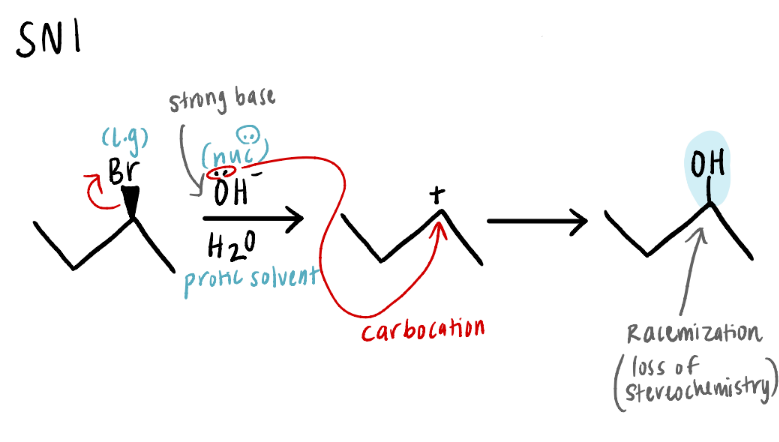 SN1
strong base
(l.g)
(nuc)
Br
OH⁻
H2O
protic solvent
+
carbocation
OH
Racemization
(loss of
stereochemistry)